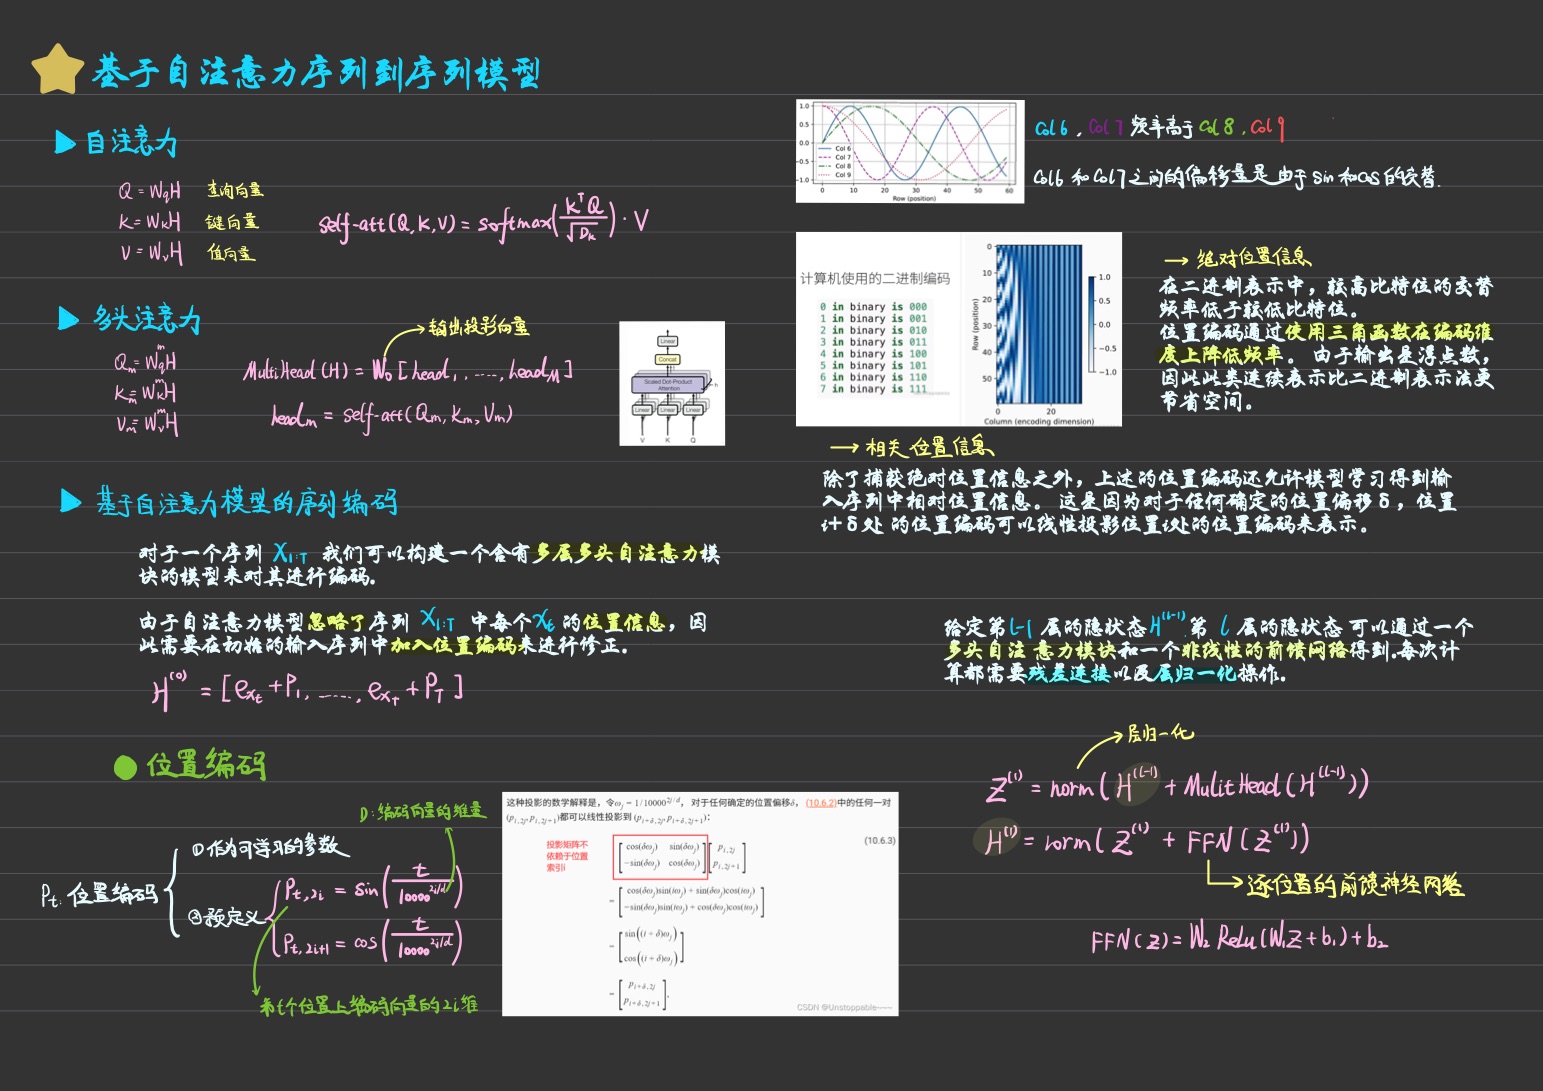 基于自注意力序列到序列模型
自注意力
Q = WqH 查询向量
K = WkH 键向量
V = WvH 值向量
self-att(Q, K, V) = softmax(KᵀQ / √Dk) · V
多头注意力
输出投影向量
Qm = WqᵐH
Km = WkᵐH
Vm = WvᵐH
MultiHead(H) = Wo [head₁, ....., headM]
headm = self-att(Qm, Km, Vm)
Linear
Concat
Scaled Dot-Product
Attention
h
Linear Linear Linear
V K Q
基于自注意力模型的序列编码
对于一个序列 X1:T 我们可以构建一个含有多层多头自注意力模
块的模型来对其进行编码.
由于自注意力模型忽略了序列 X1:T 中每个 xt 的位置信息，因
此需要在初始的输入序列中加入位置编码来进行修正.
H⁽⁰⁾ = [ext + P1, ......, exT + PT]
位置编码
D：编码向量的维量
Pt: 位置编码
①作为可学习的参数
②预定义
Pt,2i = sin(t / 10000^2i/d)
Pt,2i+1 = cos(t / 10000^2i/d)
第t个位置上编码向量的2i维
这种投影的数学解释是，令ωj = 1/10000^2j/d， 对于任何确定的位置偏移δ， (10.6.2)中的任何一对
(pi,2j, pi,2j+1)都可以线性投影到 (pi+δ,2j, pi+δ,2j+1)：
投影矩阵不
依赖于位置
索引i
[cos(δωj) sin(δωj)] [pi,2j]
[−sin(δωj) cos(δωj)] [pi,2j+1]
(10.6.3)
= [cos(δωj)sin(iωj) + sin(δωj)cos(iωj)]
[−sin(δωj)sin(iωj) + cos(δωj)cos(iωj)]
= [sin((i + δ)ωj)]
[cos((i + δ)ωj)]
= [pi+δ,2j]
[pi+δ,2j+1],
CSDN @Unstoppable~~~
1.0
0.5
0.0
−0.5
−1.0
Col 6
Col 7
Col 8
Col 9
0 10 20 30 40 50 60
Row (position)
Col6，Col7 频率高于 Col8，Col9
Col6 和 Col7 之间的偏移量是由于 sin 和 cos 的交替.
计算机使用的二进制编码
0 in binary is 000
1 in binary is 001
2 in binary is 010
3 in binary is 011
4 in binary is 100
5 in binary is 101
6 in binary is 110
7 in binary is 111
0
10
20
30
40
50
Row (position)
0 20
Column (encoding dimension)
1.0
0.5
0.0
−0.5
−1.0
→ 绝对位置信息
在二进制表示中，较高比特位的交替
频率低于较低比特位。
位置编码通过使用三角函数在编码维
度上降低频率。由于输出是浮点数，
因此此类连续表示比二进制表示法更
节省空间。
→ 相关位置信息
除了捕获绝对位置信息之外，上述的位置编码还允许模型学习得到输
入序列中相对位置信息。这是因为对于任何确定的位置偏移δ，位置
i+δ处 的位置编码可以线性投影位置i处的位置编码来表示。
给定第 l-1 层的隐状态 H⁽ˡ⁻¹⁾，第 l 层的隐状态 可以通过一个
多头自注意力模块和一个非线性的前馈网络得到.每次计
算都需要残差连接以及层归一化操作.
层归一化
Z⁽ˡ⁾ = norm(H⁽ˡ⁻¹⁾ + MulitHead(H⁽ˡ⁻¹⁾))
H⁽ˡ⁾ = norm(Z⁽ˡ⁾ + FFN(Z⁽ˡ⁾))
逐位置的前馈神经网络
FFN(z) = W₂ Relu(W₁Z + b₁) + b₂